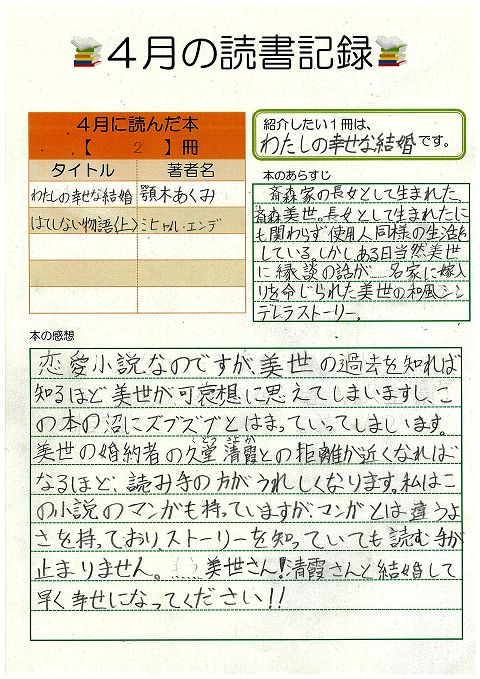 ４月の読書記録
４月に読んだ本
【 2 】冊
タイトル 著者名
わたしの幸せな結婚 顎木あくみ
はてしない物語(上) ミヒャエル・エンデ
紹介したい１冊は、
わたしの幸せな結婚 です。
本のあらすじ
斎森家の長女として生まれた、
斎森美世。長女として生まれたに
も関わらず使用人同様の生活を
している。しかし、ある日当然美世
に縁談の話が…名家に嫁入
りを命じられた美世の和風シン
デレラストーリー。
本の感想
恋愛小説なのですが、美世の過去を知れば
知るほど美世が可哀想に思えてしまいますし、こ
の本の沼にズブズブとはまっていってしまいます。
美世の婚約者の久堂 清霞との距離が近くなれば
くどう きよか
なるほど、読み手の方がうれしくなります。私はこ
の小説のマンガも持っていますが、マンガとは違うよ
さを持っており、ストーリーを知っていても読む手が
止まりません。 美世さん!清霞さんと結婚して
早く幸せになってください!!